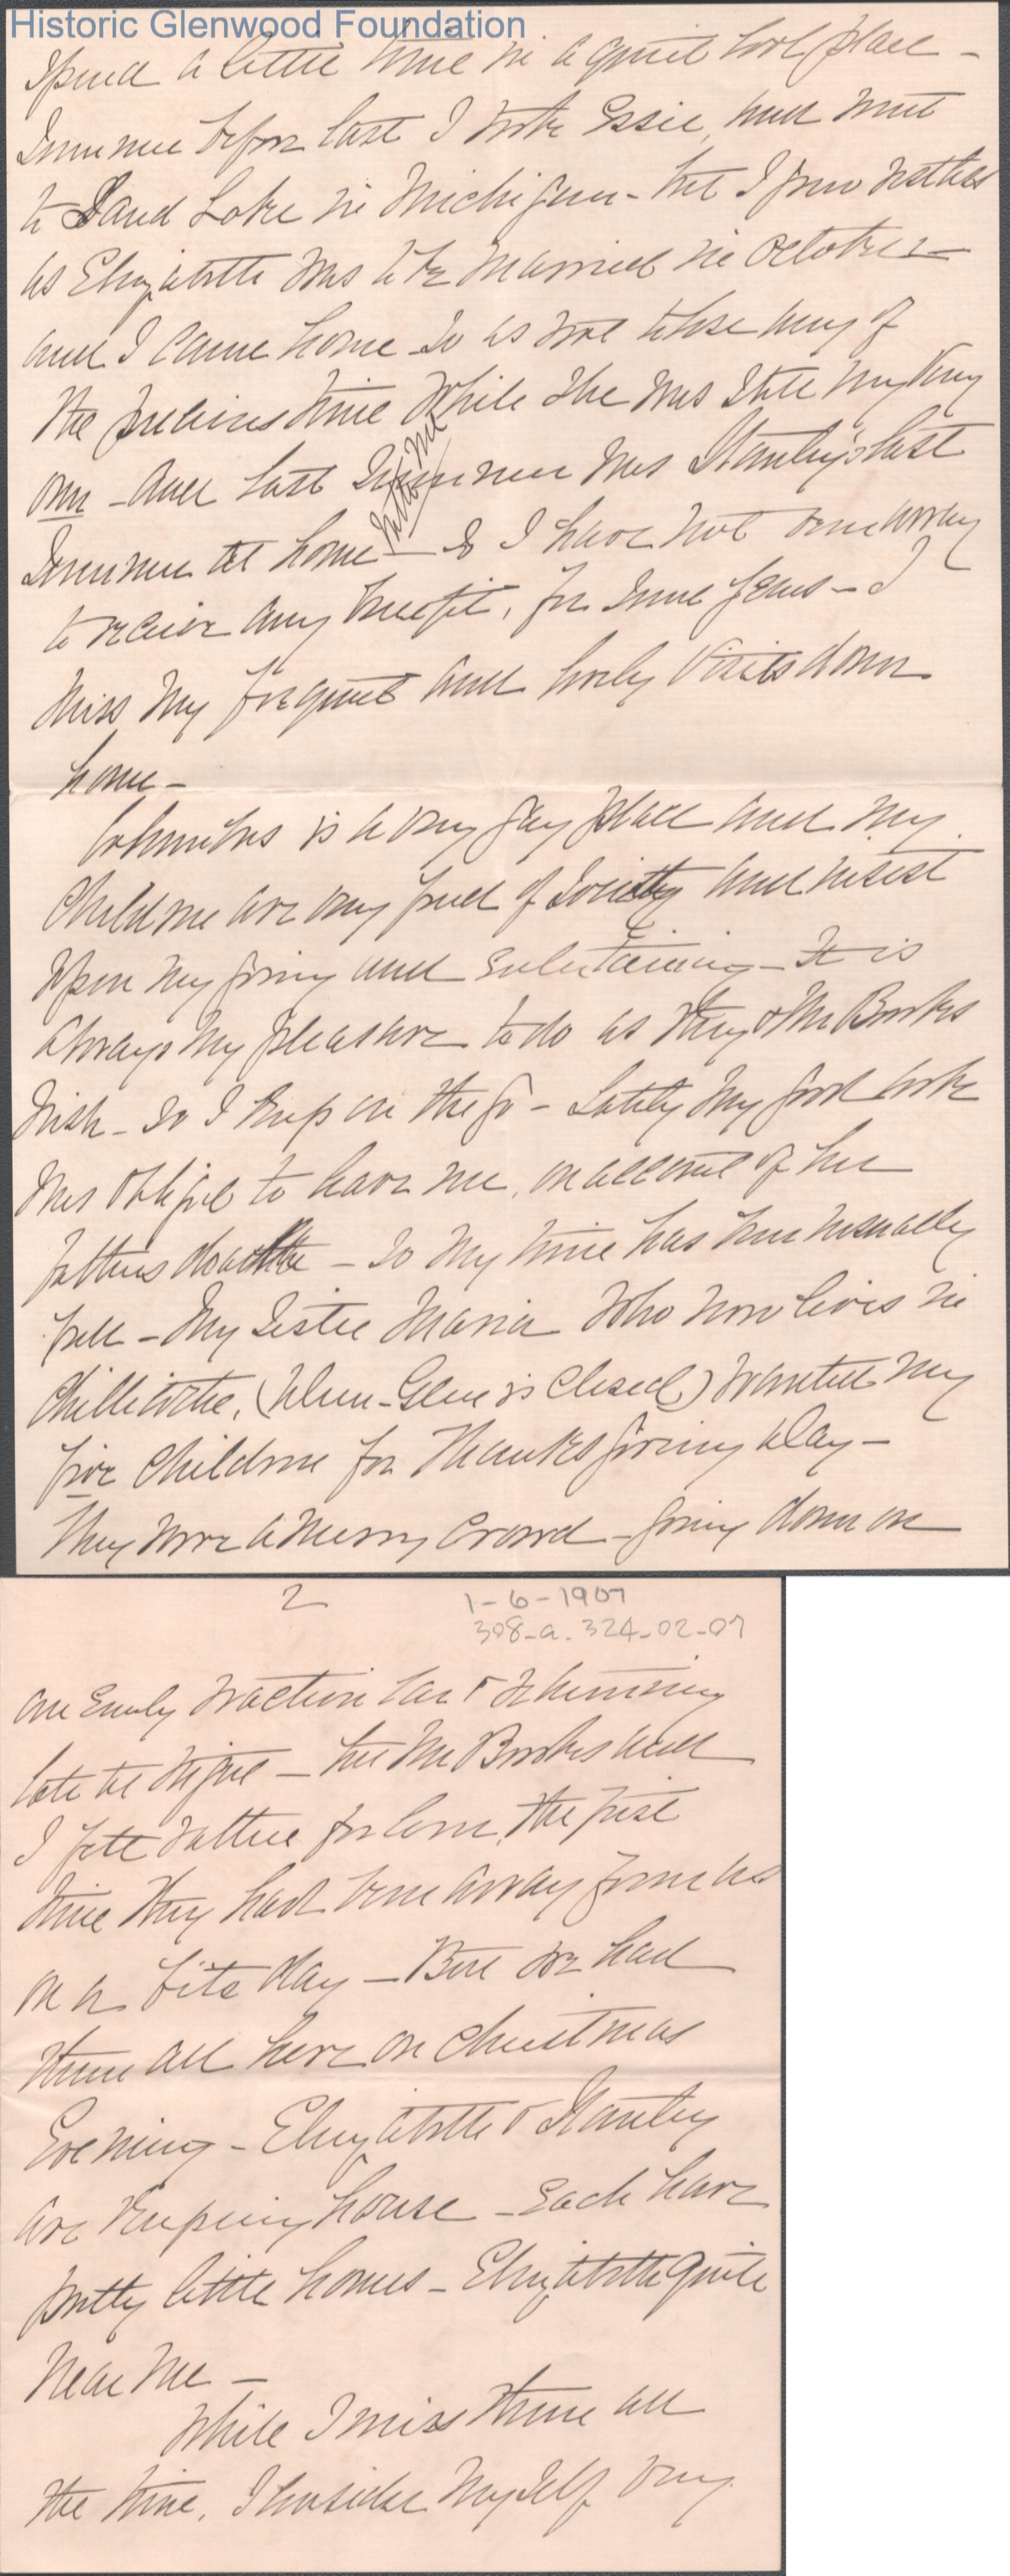 Historic Glenwood Foundation
spend a little time in a quiet cool place -
Summer before last I took Essie, and went
to Sand Lake in Michigan - but I grew restless
as Elizabeth was to be married in October -
and I came home so as not to lose any of
the precious time while she was still my very
own - And last Summer was Stanley's last
Summer at home with me - So I have not been away
to receive any benefit, for some years - I
miss my frequent and lovely visits down
home -
Columbus is a very gay place and my
Children are very fond of Society and insist
upon my going and entertaining - It is
always my pleasure to do as they & Mr Brooks
wish - so I keep on the go - Lately my good cook
was obliged to leave me, on account of her
fathers death - so my time has been unusually
full - My Sister Maria who now lives in
Chillicothe, (when Glen is closed) wanted my
five Children for Thanksgiving Day -
They were a merry crowd - going down on
2
1-6-1907
308-a. 324-02-07
an early traction car & returning
late at night - but Mr Brooks and
I felt rather forlorn, the first
time they had been away from us
on a fete day - But we had
them all here on Christmas
Evening - Elizabeth & Stanley
are keeping house - each have
pretty little homes - Elizabeth quite
near me -
While I miss them all
the time, I consider myself very